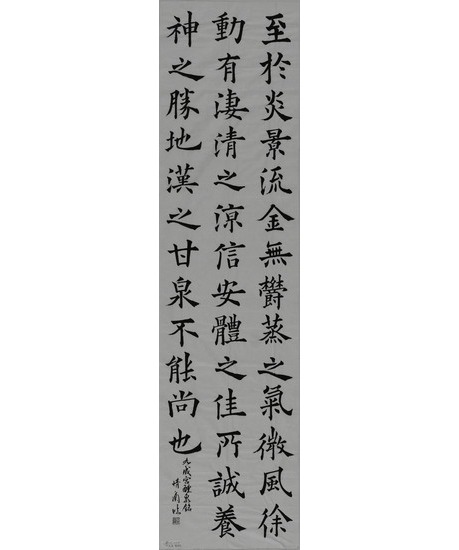 至於炎景流金無鬱蒸之氣微風徐
動有淒清之涼信安體之佳所誠養
神之勝地漢之甘泉不能尚也
九成宮醴泉銘